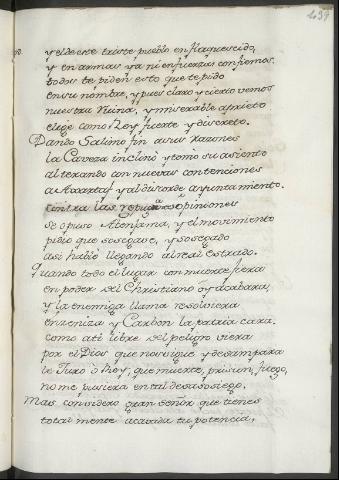 y el de ese triste pueblo enflaquescido,
y en armas ya ni en fuerzas confiemos.
todos te piden esto que te pido
en su nombre, y pues claro y cierto vemos
nuestra Ruina, y miserable aprieto
elige como Rey fuerte y discreto.
Dando Salino fin a sus razones
la Caveza inclinò y tomo su asiento
alterando con nuevas contenciones
a Axartaf y al discorde ayuntamiento.
contra las opiniones
se opuso Alenjama, y el movimiento
pidio que sosegase, y sosegado
asi habló llegando al real estrado.
Quando todo el lugar con muerte fiera
en poder del Christiano oy acabara,
y la enemiga llama resolviera
en zeniza y Carbon la patria cara.
como a ti libre del peligro viera
por el Dios que nos rige y desampara
te Juro ò Rey, que muerte, prision, fuego,
no me pusiera en tal desasosiego.
Mas considero gran Señor que tienes
totalmente acavada tu potencia,